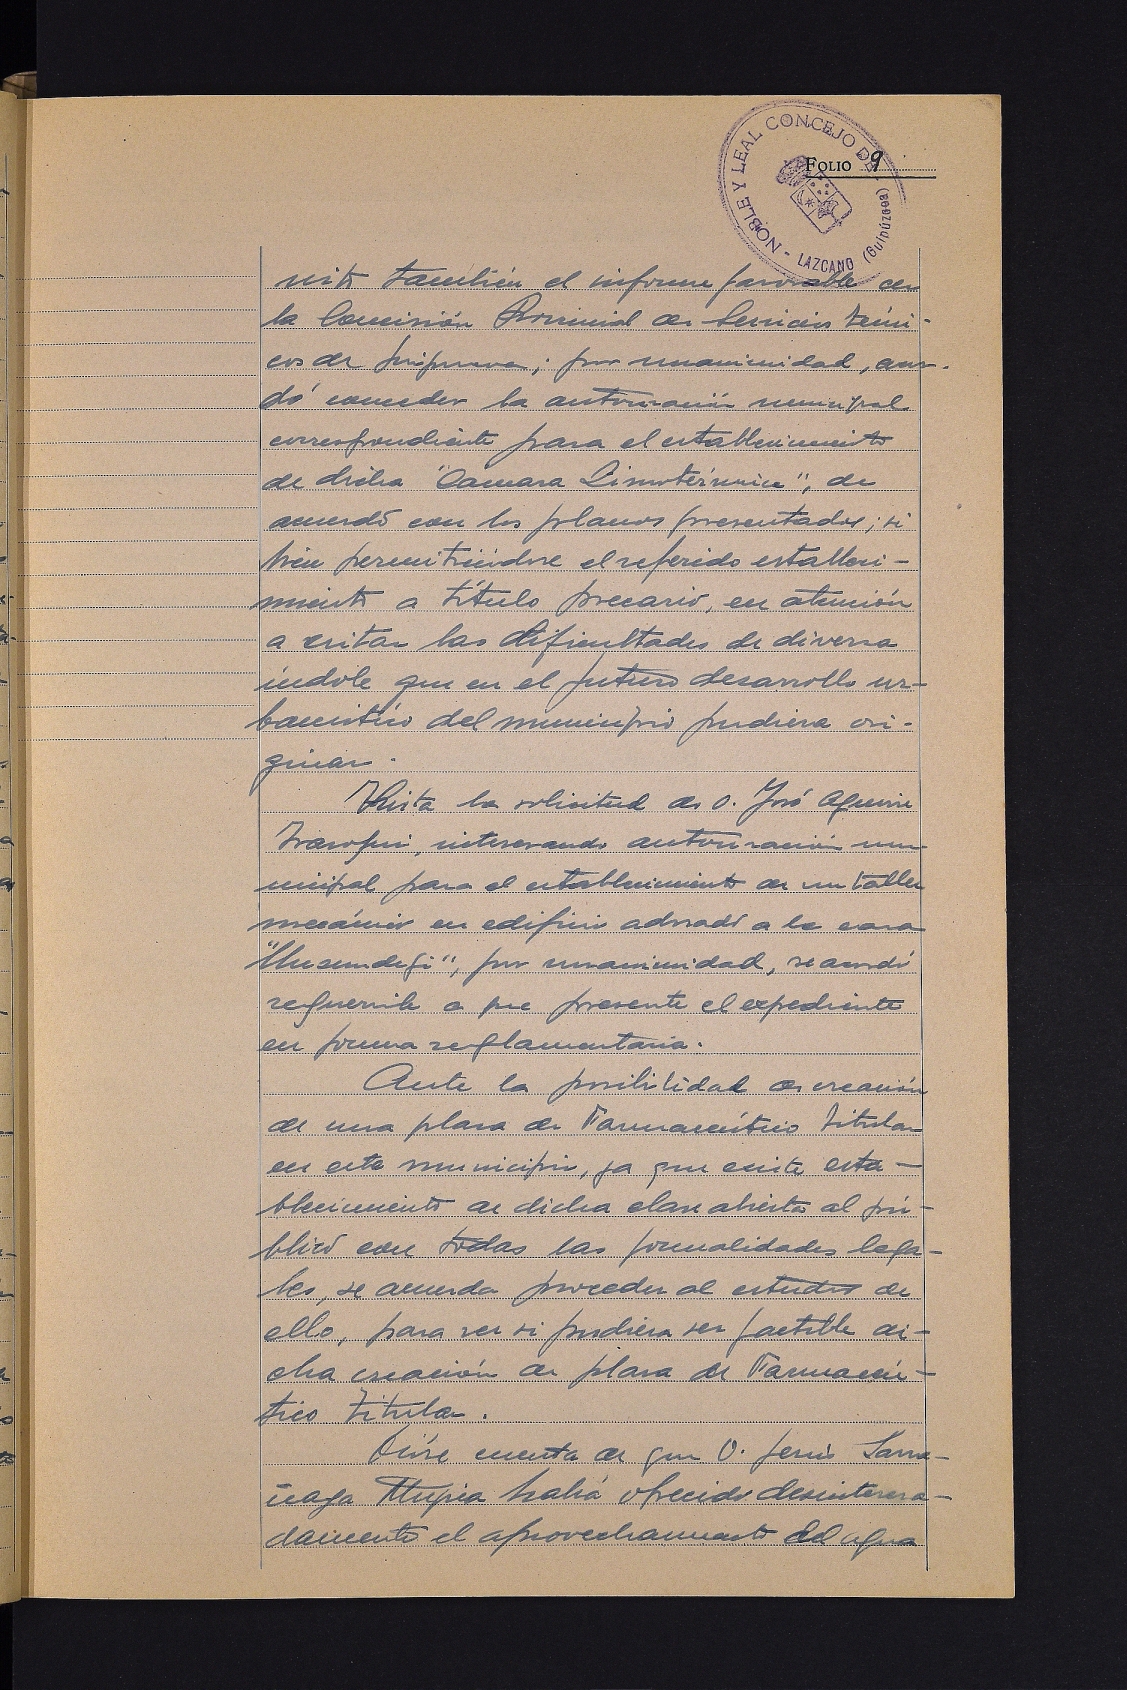 NOBLE Y LEAL CONCEJO DE - LAZCANO (Guipúzcoa)
FOLIO 9
visto también el informe favorable en
la Comisión Provincial de Servicios Técni-
cos de Guipúzcoa; por unanimidad, acor-
dó conceder la autorización municipal
correspondiente para el establecimiento
de dicha "Camara Zimotérmica", de
acuerdo con los planos presentados; si
bien permitiéndose el referido estableci-
miento a título precario, en atención
a evitar las dificultades de diversa
índole que en el futuro desarrollo ur-
banístico del municipio pudiera ori-
ginar.
Vista la solicitud de D. José Aguirre
interesando autorización mu-
nicipal para el establecimiento de un taller
mecánico en edificio adosado a la casa
por unanimidad, se acordó
requerirle a que presente el expediente
en forma reglamentaria.
Ante la posibilidad de creación
de una plaza de Farmacéutico Titular
en este municipio, ya que existe esta-
blecimiento de dicha clase abierto al pú-
blico con todas las formalidades lega-
les, se acuerda proceder al estudio de
ello, para ver si pudiera ser factible di-
cha creación de plaza de Farmacéu-
tico Titular.
Dióse cuenta de que D. Jesús Larra-
ñaga Mugica había ofrecido desinteresa-
damente el aprovechamiento del agua